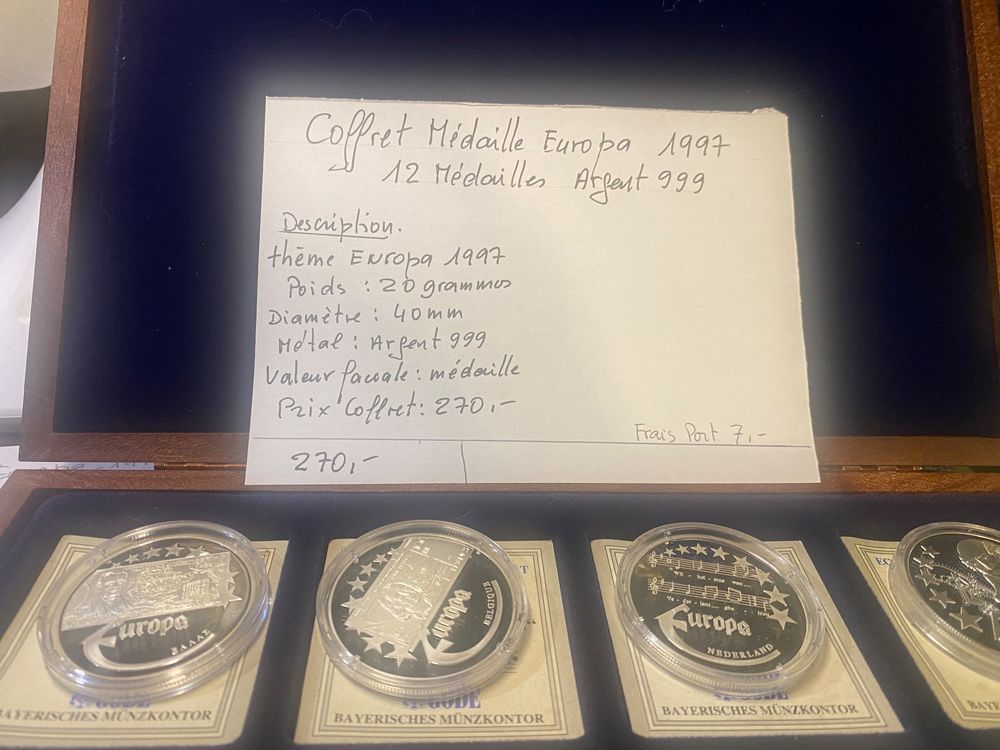 Coffret Médaille Europa 1997
12 Médailles Argent 999
Description.
thème Europa 1997
Poids : 20 grammes
Diamètre : 40 mm
Métal : Argent 999
Valeur faciale : médaille
Prix Coffret : 270,-
Frais Port 7,-
270,-
Europa
ΕΛΛΑΣ
Europa
BELGIQUE
Europa
NEDERLAND
GÖDE
BAYERISCHES MÜNZKONTOR
GÖDE
BAYERISCHES MÜNZKONTOR
GÖDE
BAYERISCHES MÜNZKONTOR
BAYERISCHES